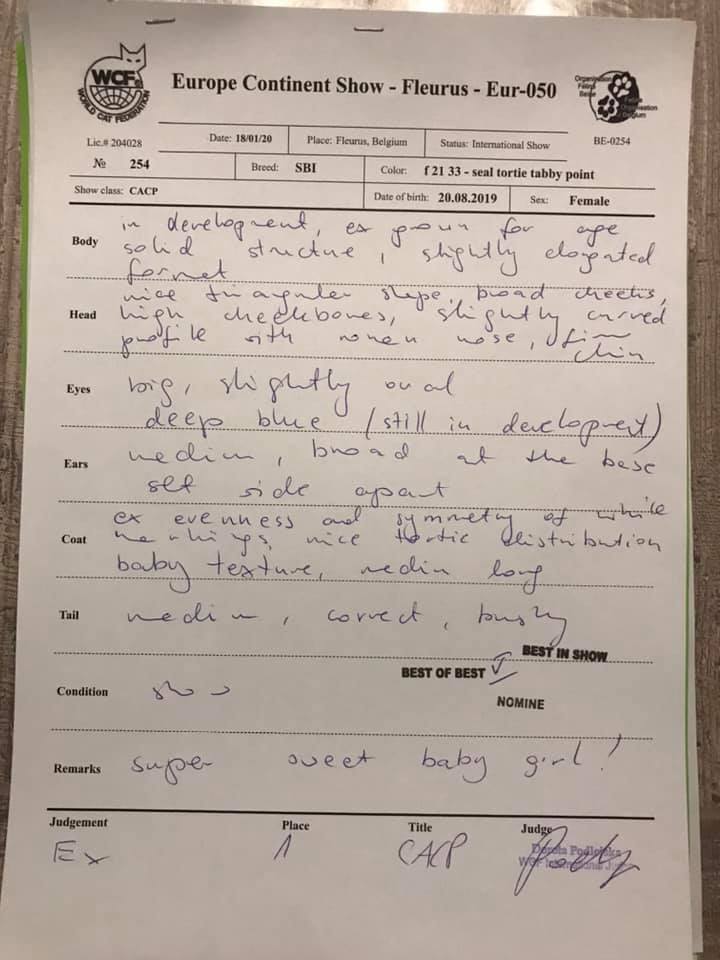 WCF®
WORLD CAT FEDERATION
Europe Continent Show - Fleurus - Eur-050
Organisation
Féline
Belge
Feline
Organisation
Belgium
Lic.# 204028
Date: 18/01/20
Place: Fleurus, Belgium
Status: International Show
BE-0254
№ 254
Breed: SBI
Color: f 21 33 - seal tortie tabby point
Show class: CACP
Date of birth: 20.08.2019
Sex: Female
Body
in development, ex grown for age
solid structure, slightly elongated
format
Head
nice triangular shape, broad cheeks,
high cheekbones, slightly curved
profile with roman nose, firm
chin
Eyes
big, slightly oval
deep blue (still in development)
Ears
medium, broad at the base
set side apart
Coat
ex evenness and symmetry of white
markings, nice tortie distribution
baby texture, medium long
Tail
medium, correct, bushy
BEST IN SHOW
BEST OF BEST
NOMINE
Condition
show
Remarks
super sweet baby girl!
Judgement
Place
Title
Judge
Ex
1
CACP
WCF International